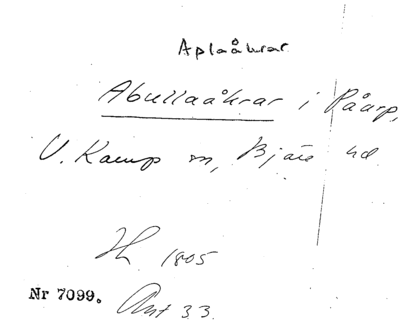 Aplaåkrar
Abullaåkrar i Påarp,
V. Karup sn, Bjäre hd
H 1805
Nr 7099. Ant 33.